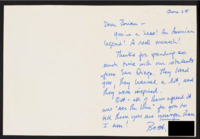 June 28
Dear Brian –
You're a hero! An American
legend! A real mensch!
Thanks for spending so
much time with our students
from San Diego. They loved
you, they learned a lot, and
they were inspired.
But – all of them agreed it
was "        " for you to
tell them you are younger than
I am!
Best,